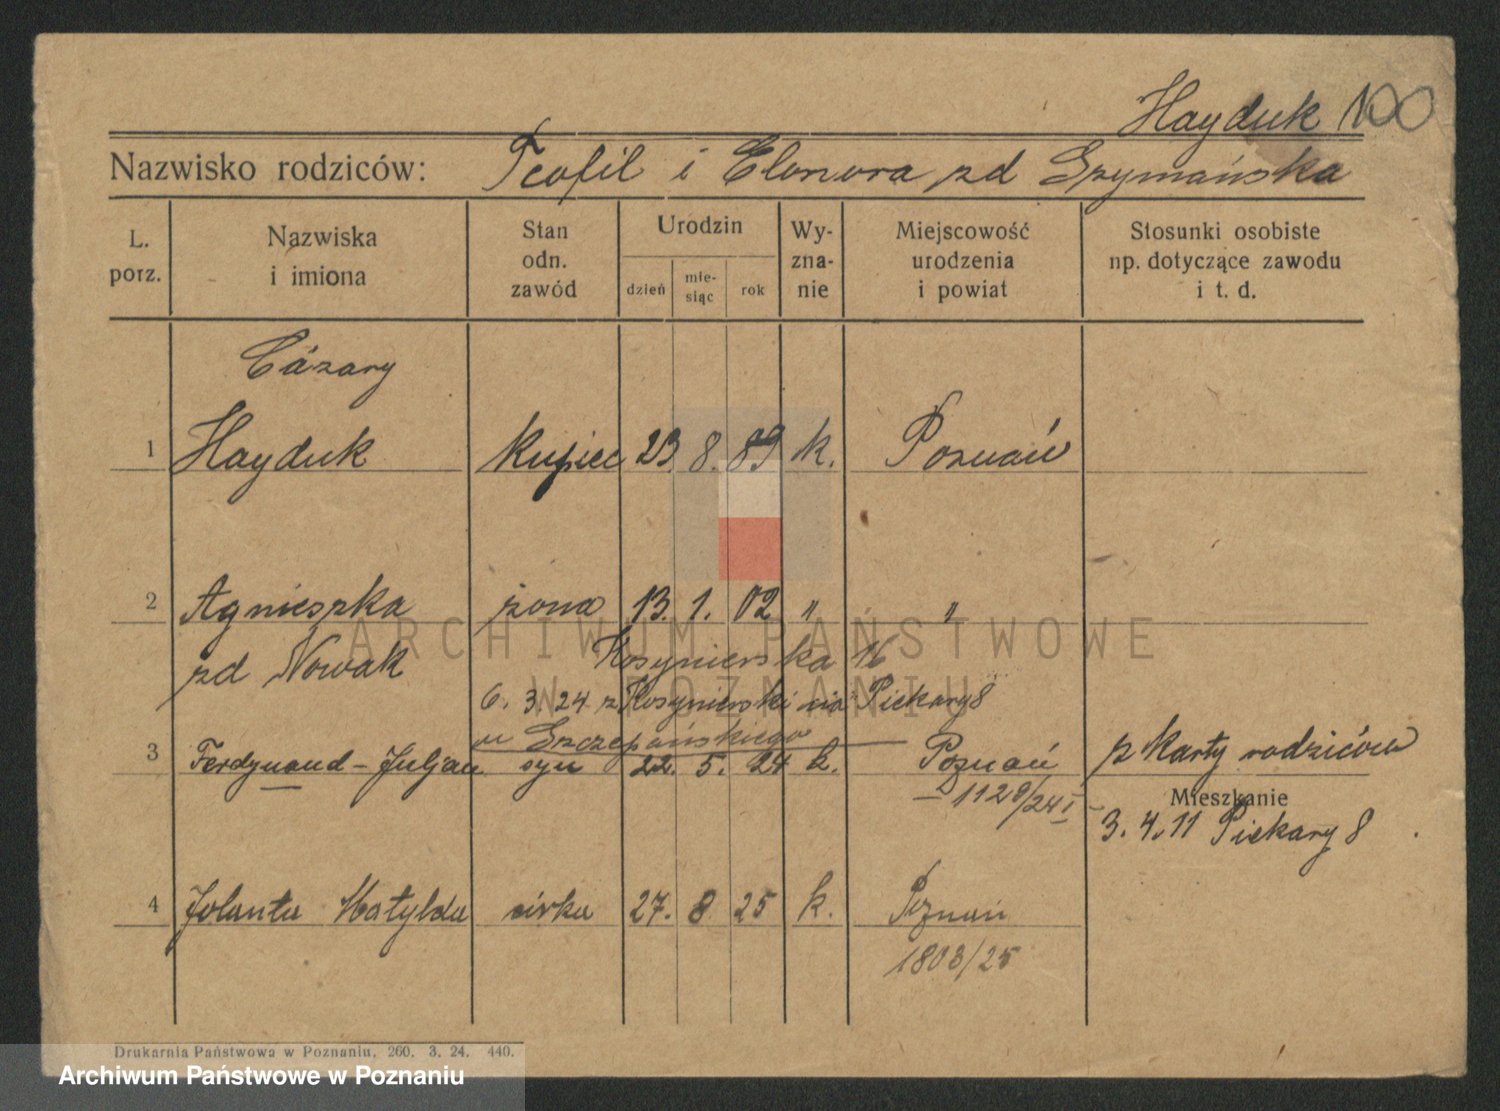 Hayduk 100
Nazwisko rodziców: Teofil i Elonora zd Szymańska
L. porz.
Nazwiska i imiona
Stan odn. zawód
Urodzin
dzień
mie-siąc
rok
Wy-zna-nie
Miejscowość urodzenia i powiat
Stosunki osobiste np. dotyczące zawodu i t. d.
Cázary
1 Hayduk kupiec 23. 8. 89 k. Poznań
2 Agnieszka żona 13. 1. 02 " "
zd Nowak Kosynierska 16
6. 3. 24 z Kosynierski na Piekary 8
u Szczepańskiego
3 Ferdynand-Juljan syn 22. 5. 24 k. Poznań z karty rodziców
1128/24 I
Mieszkanie
3. 4. 11 Piekary 8
4 Jolanta Matylda córka 27. 8 25 k. Poznań
1803/25
Drukarnia Państwowa w Poznaniu, 260. 3. 24. 440.
ARCHIWUM PAŃSTWOWE
W POZNANIU
Archiwum Państwowe w Poznaniu